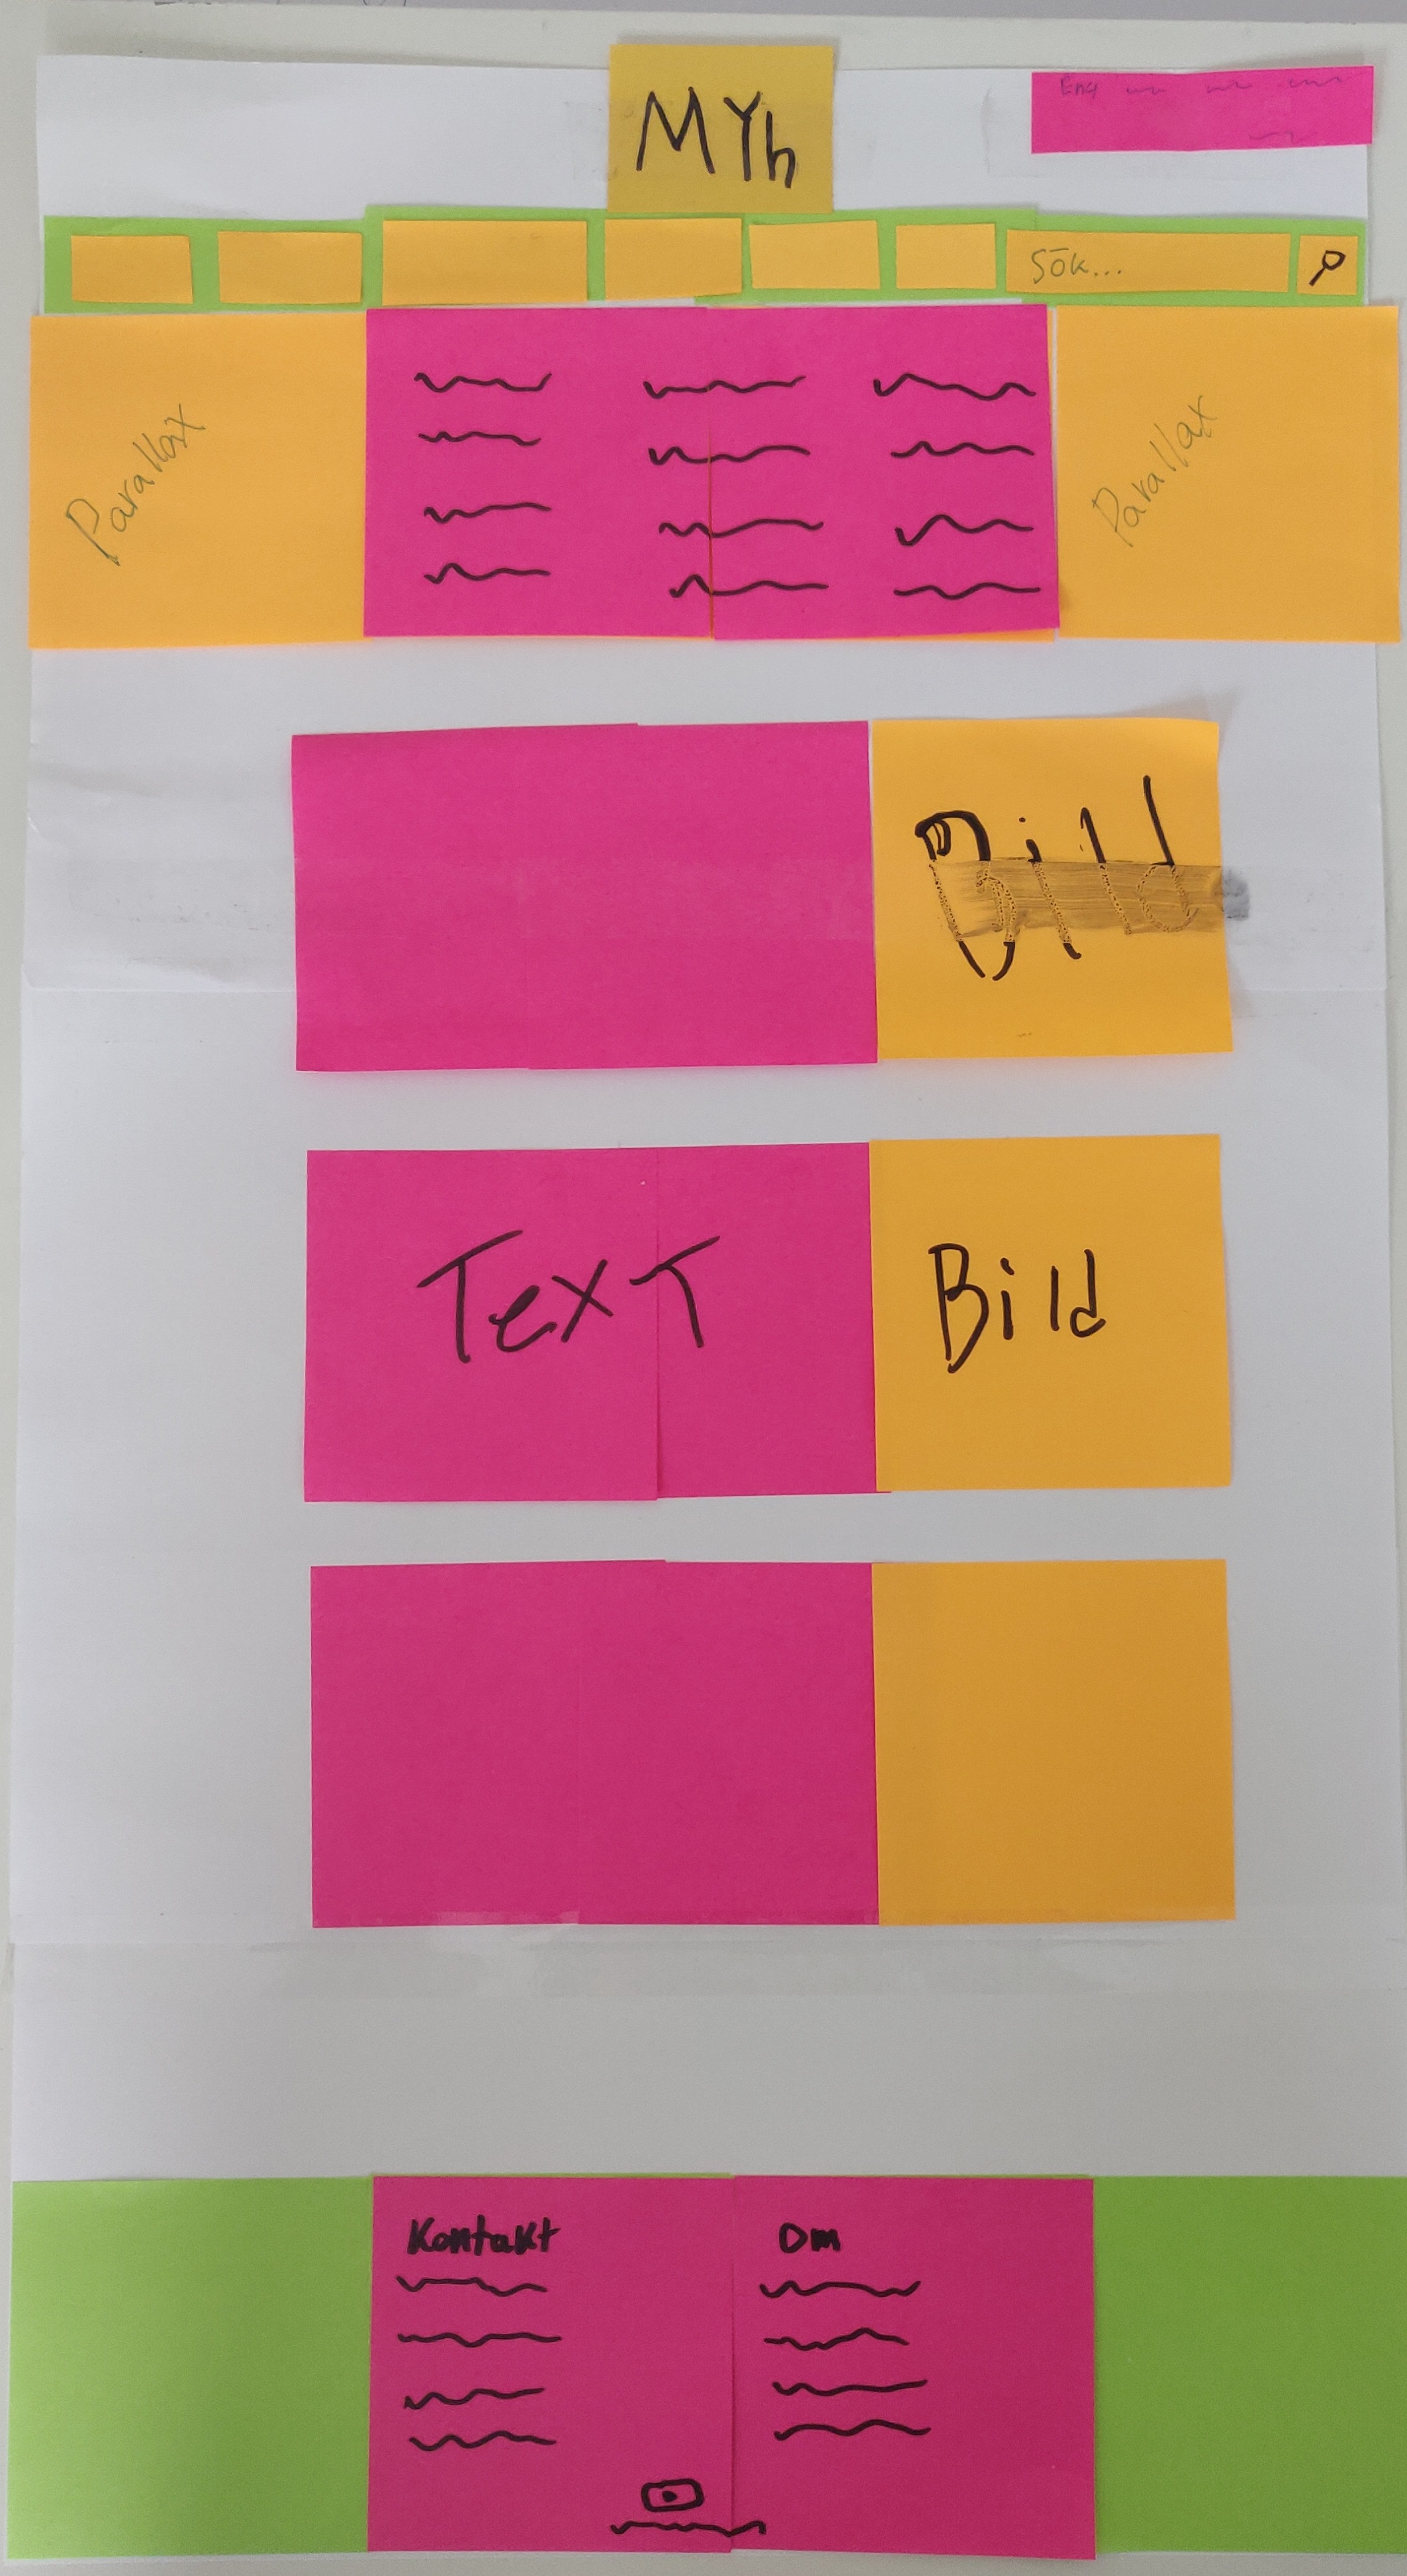 MYh
Eng
Sök...
Parallax
Parallax
Bild
Text
Bild
Kontakt
Om